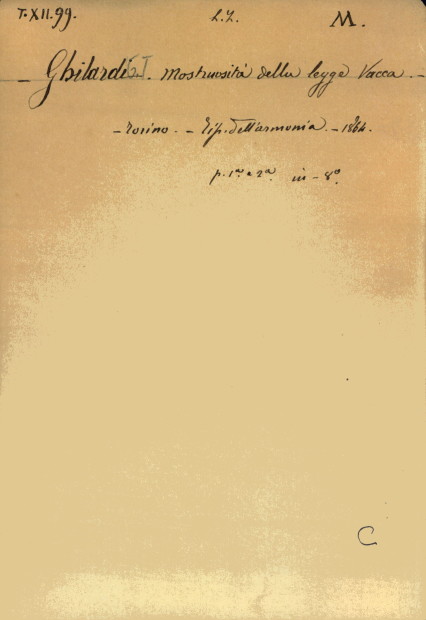 T.XII.99. L.L. M.
— Ghilardi G. T. Mostruosità della legge Vacca. —
— Torino. — Tip. dell'armonia. — 1864.
p. 1ª e 2ª. in-8º.
C